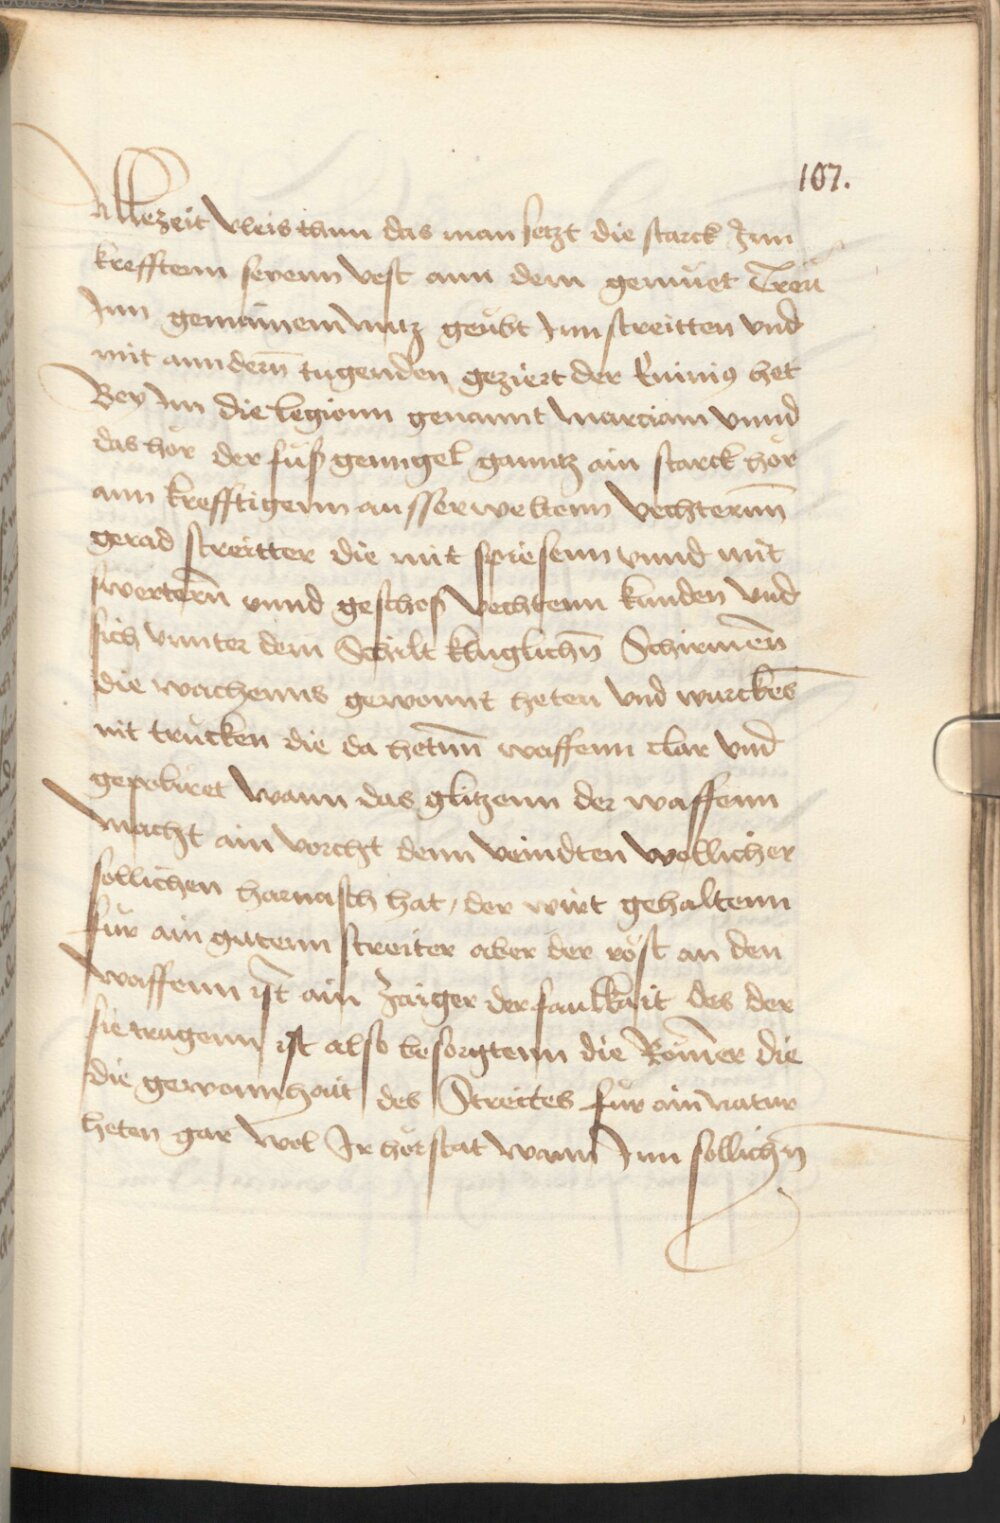 107.
Allezeit vleis thun das man setzt die starck Inn
krefftenn seyenn vest ann dem gemüet Treü
Inn gemainem nutz geübt Inn streitten vnd
mit anndern̄ tugenden geziert der kuinig het
Bey Im die legionn genannt marciam vnnd
das hör der füß genngel ganntz ain starck hör
ann krefftigenn ausserweltenn vechternn̄
gerad streitter die mit spiesenn vnnd mit
swertern̄ vnnd geschoß vechtenn kunden vnd
sich vnnter dem Schilt kluglichn̄ Schirmen̄
die wachenns gewonnt heten vnd
nit trucken die da hetnn̄ waffenn clar vnd
gepoliret wann das glitzenn der waffenn
macht ain vorcht denn veindten wöllicher
sollichen harnasch hat, der wirt gehaltenn
für ain gutenn streiter aber der röst an den
waffenn ist ain Zaiger der faulkait des der
sie tragenn ist also besorgtenn die Römer die
die gewonnhait des Streites für ain natur
heten gar wol Ir hörstat wann Inn sollichn̄